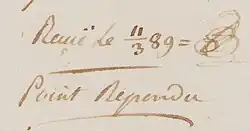 Reçu le 11/3 89 =
Point Repondu